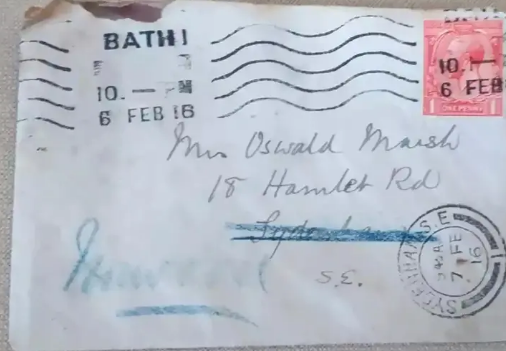 BATH 1
10. — PM
6 FEB 16
10. 1—
6 FEB
ONE PENNY
Mrs Oswald Marsh
18 Hamlet Rd
Sydenham
S.E.
SYDENHAM S.E.
9.45 A
7 FE
16